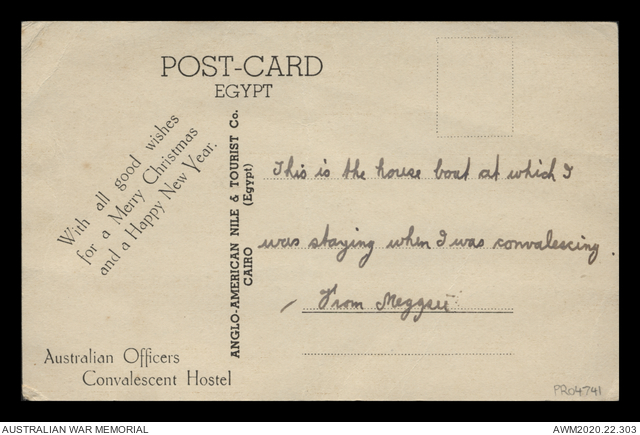 POST-CARD
EGYPT
With all good wishes
for a Merry Christmas
and a Happy New Year.
Australian Officers
Convalescent Hostel
ANGLO-AMERICAN NILE & TOURIST Co.
CAIRO (Egypt)
This is the house boat at which I
was staying when I was convalescing.
From Meggsie
PR04741
AUSTRALIAN WAR MEMORIAL
AWM2020.22.303